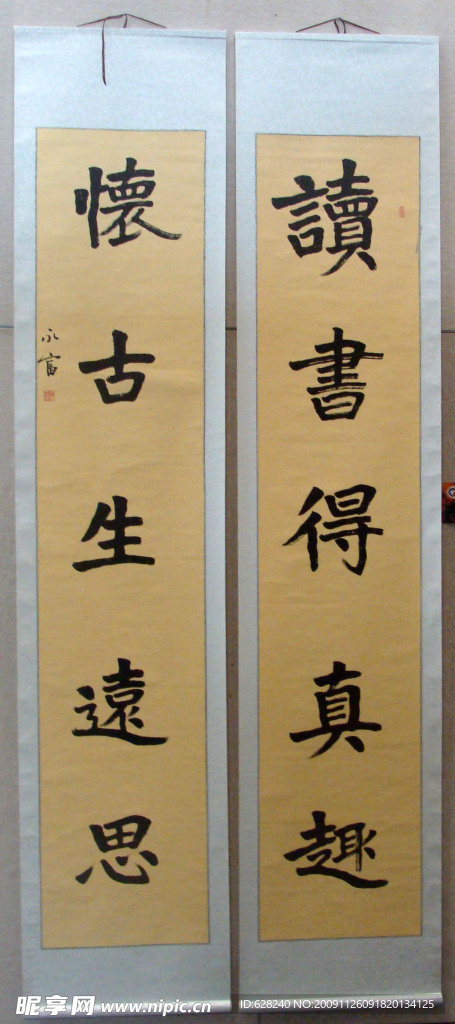 讀書得真趣
懷古生遠思
永富
昵享网 www.nipic.cn
ID:628240 NO:20091126091820134125